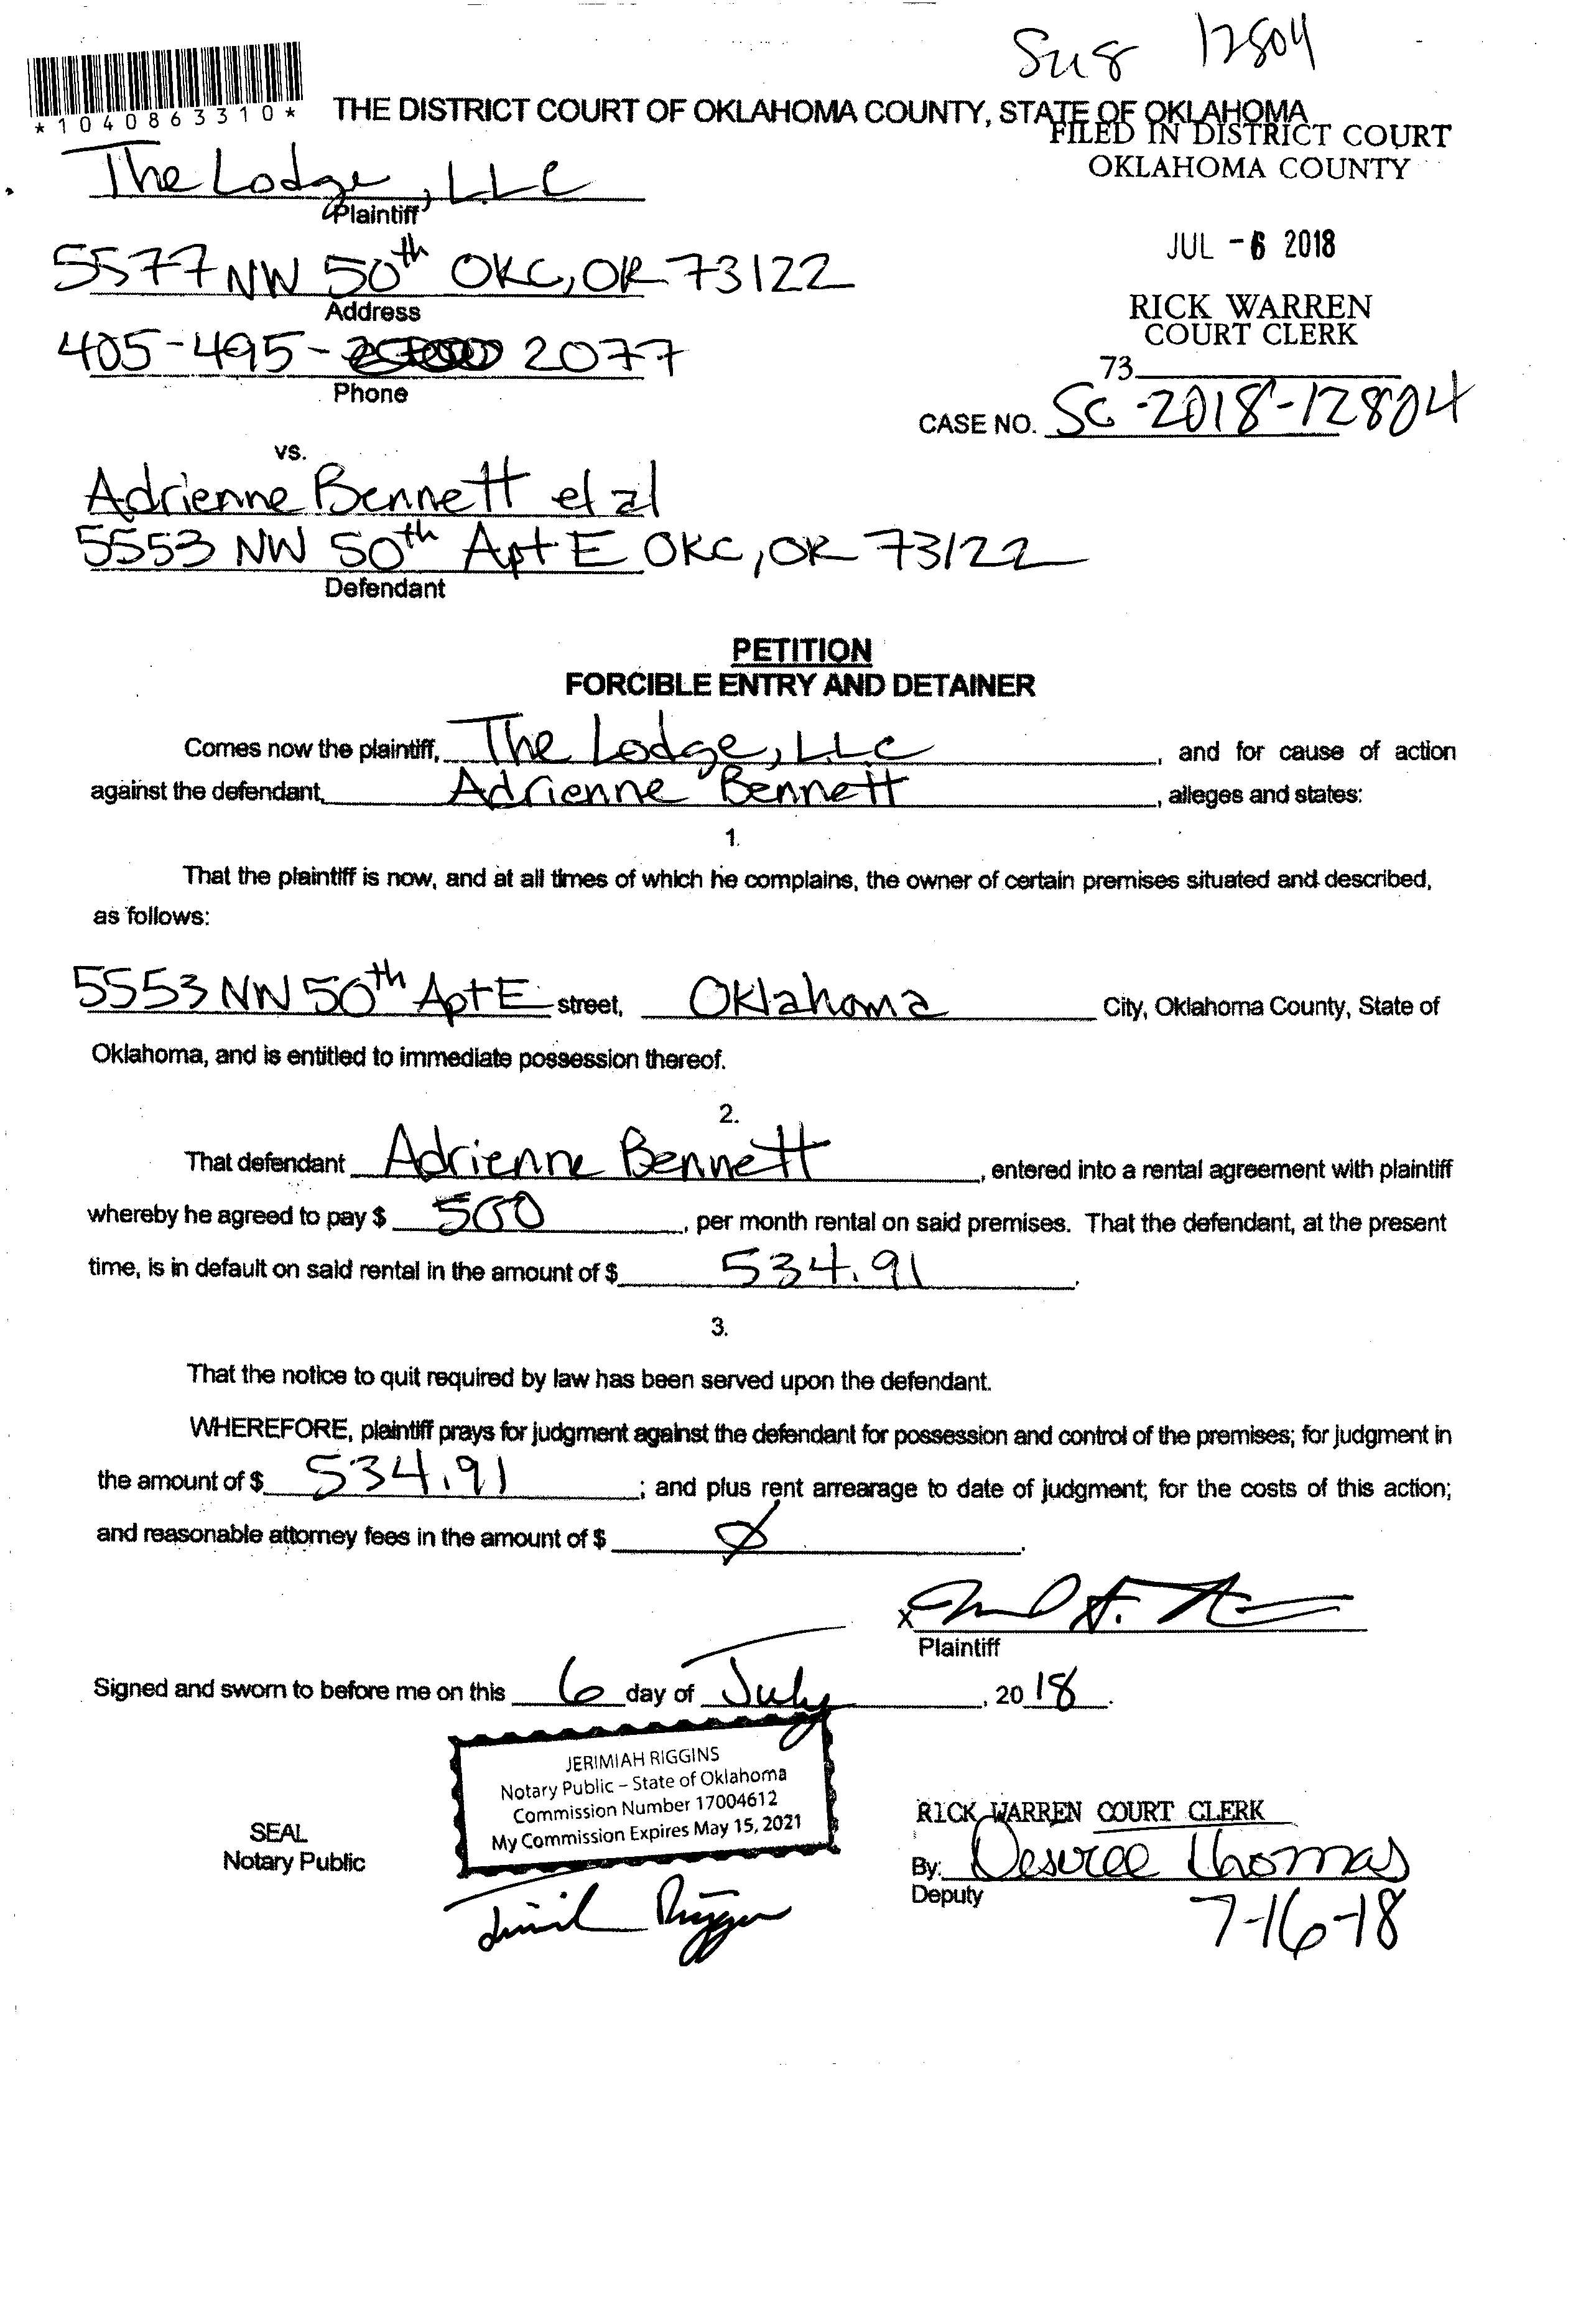 12804
*1040863310*
THE DISTRICT COURT OF OKLAHOMA COUNTY, STATE OF OKLAHOMA
FILED IN DISTRICT COURT
OKLAHOMA COUNTY
The Lodge, LLC
Plaintiff
JUL -6 2018
5577 NW 50th OKC, OK 73122
Address
RICK WARREN
COURT CLERK
405-495- 2077
Phone
73
CASE NO. SC-2018-12804
vs.
Adrienne Bennett et al
5553 NW 50th Apt E OKC, OK 73122
Defendant
PETITION
FORCIBLE ENTRY AND DETAINER
Comes now the plaintiff, The Lodge, LLC, and for cause of action
against the defendant, Adrienne Bennett, alleges and states:
1.
That the plaintiff is now, and at all times of which he complains, the owner of certain premises situated and described,
as follows:
5553 NW 50th Apt E street, Oklahoma City, Oklahoma County, State of
Oklahoma, and is entitled to immediate possession thereof.
2.
That defendant Adrienne Bennett, entered into a rental agreement with plaintiff
whereby he agreed to pay $ 500, per month rental on said premises. That the defendant, at the present
time, is in default on said rental in the amount of $ 534.91.
3.
That the notice to quit required by law has been served upon the defendant.
WHEREFORE, plaintiff prays for judgment against the defendant for possession and control of the premises; for judgment in
the amount of $ 534.91; and plus rent arrearage to date of judgment; for the costs of this action;
and reasonable attorney fees in the amount of $ Ø.
X
Plaintiff
Signed and sworn to before me on this 6 day of July, 2018.
JERIMIAH RIGGINS
Notary Public – State of Oklahoma
Commission Number 17004612
My Commission Expires May 15, 2021
SEAL
Notary Public
RICK WARREN COURT CLERK
By: Desiree Thomas
Deputy
7-16-18